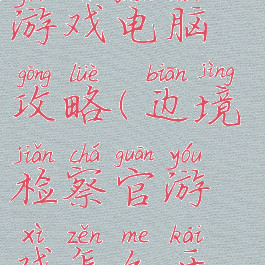 游戏电脑
gōng lüè biān jìng
攻略(边境
jiǎn chá guān yóu
检察官游
xì zěn me kāi
戏怎么